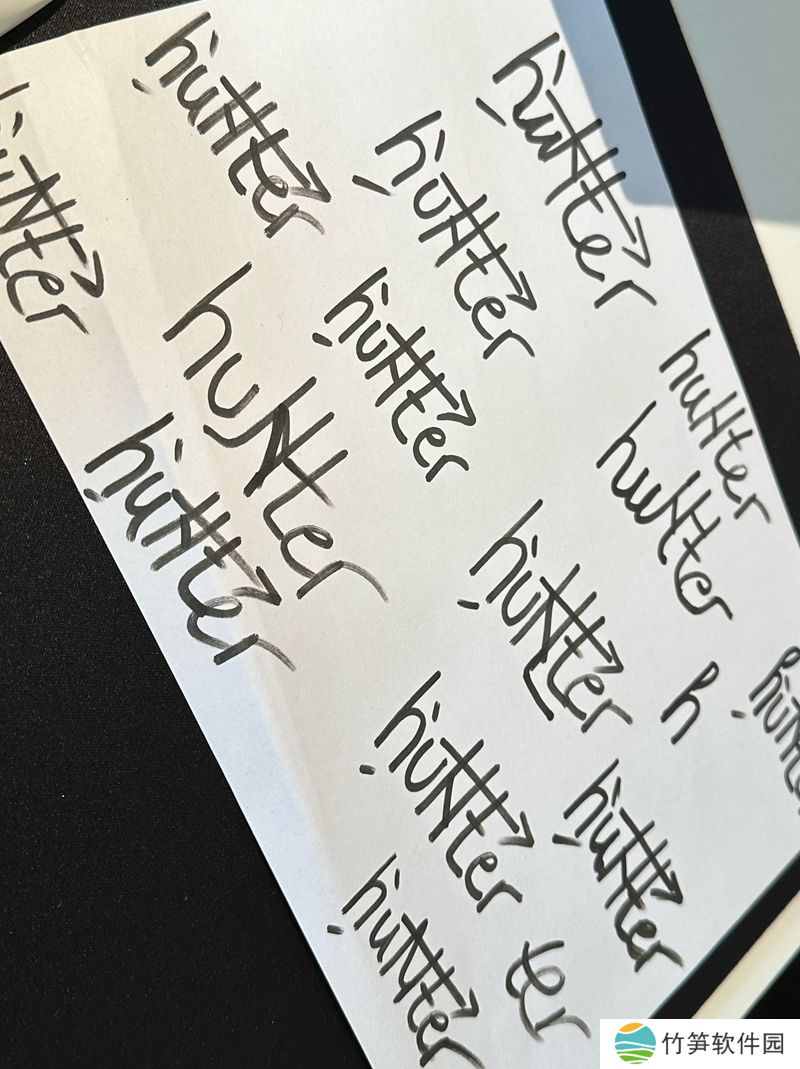 hunter
hunter
hunter
hunter
hunter
hunter
hunter
hunter
hunter
hunter
hunter
h
hunter
hunter
hunter
ter
竹笋软件园